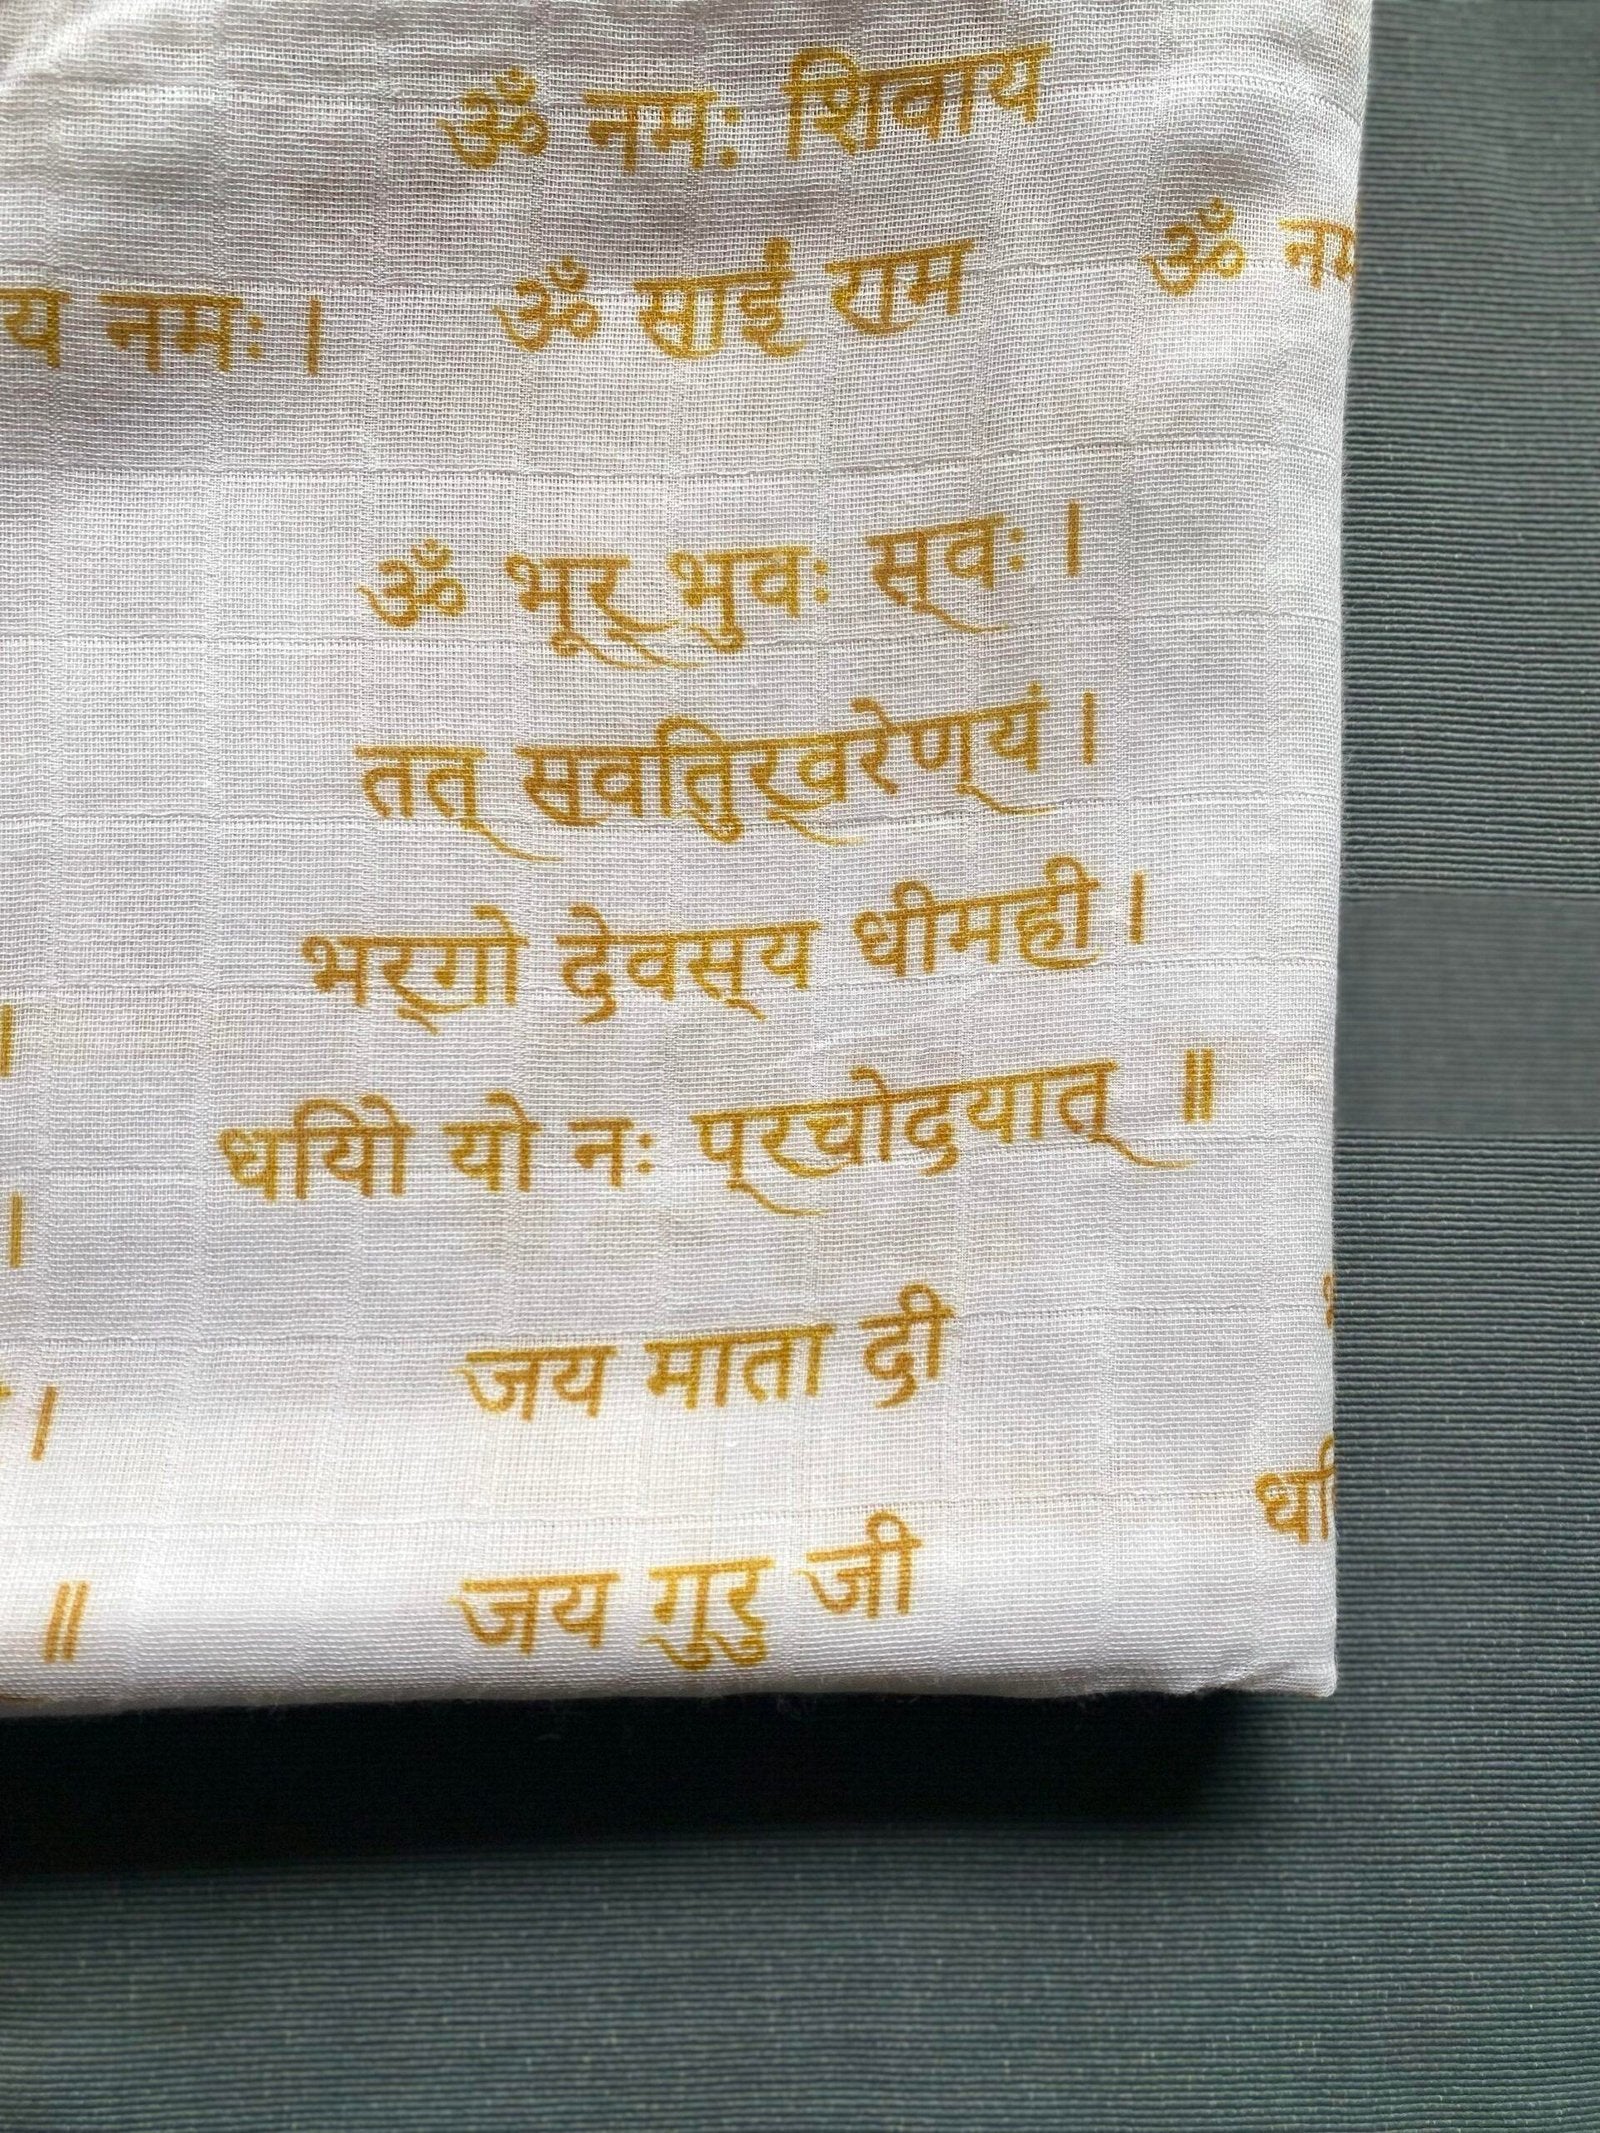 ॐ नमः शिवाय
ॐ नम
य नमः ।
ॐ साईं राम
ॐ भूर् भुवः स्वः ।
तत् सवतिुर्वरेण्यं ।
भर्गो देवस्य धीमही ।
धयिो यो नः प्रचोदयात् ॥
।
।
।
जय माता दी
जय गुरु जी
॥